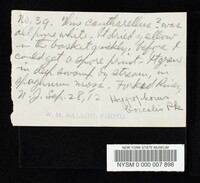 No. 39. This cantharellus? was
all pure white. It dried yellow
in the basket quickly before I
could get a spore print. It grew
in deep swamp by stream, in
sphagnum moss. Forked River,
N. J. Sep. 28, 12
Hygrophorus
borealis Pk
W. H. BALLOU, PHOTO
NEW YORK STATE MUSEUM
NYSM 0 000 007 898